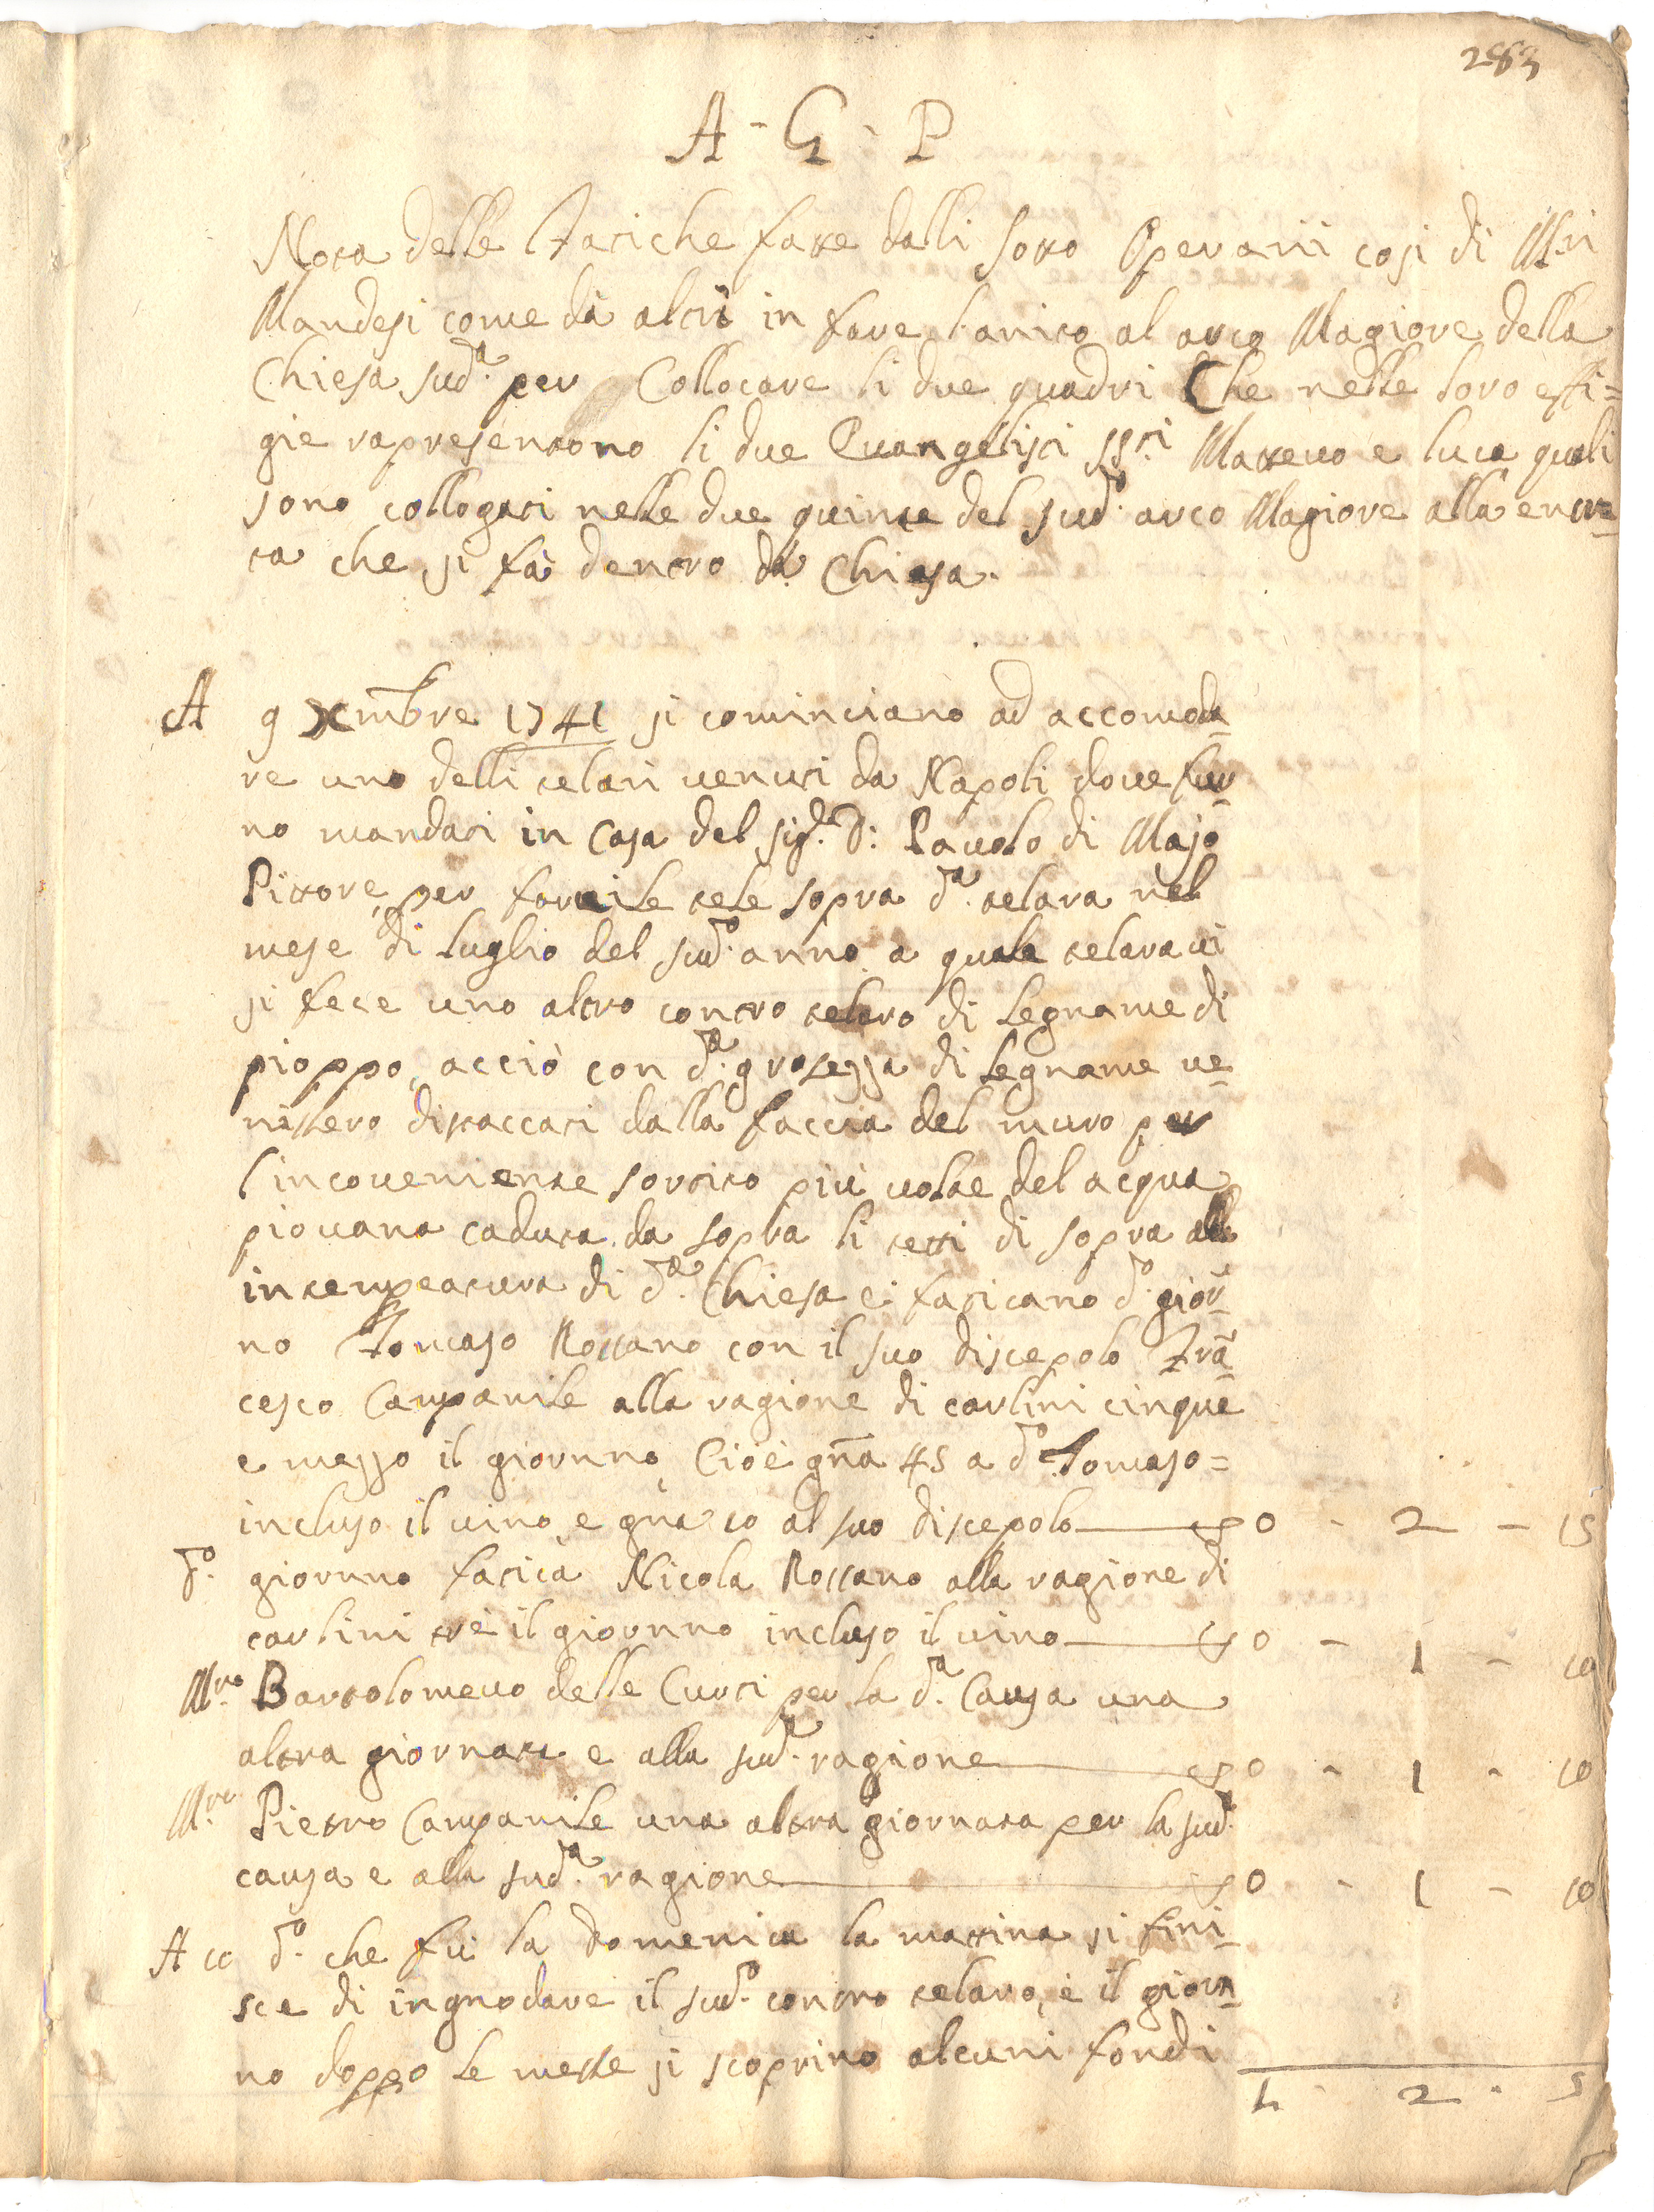 283
A - G - P
Nota delle Fatiche fatte dalli sotto Operarii cosi di M.ri
Mandesi come di altri in fare l'anito al arco Magiore della
Chiesa sud.a per Collocare li due quadri Che nelle loro effi=
gie rapresentono li due Evangelisti SS.ti Matteuo e luca quali
sono collogati nelle due quinte del sud.o arco Magiore alla entra=
ta che si fà dentro d.a Chiesa.
A 9 Xmbre 1741 si cominciano ad accomoda=
re uno delli telari venuti da Napoli dove fur=
no mandati in Casa del Sig.r D: Pauolo di Majo
Pittore per farcile tele sopra d.a telara nel
mese di luglio del sud.o anno a quale telara ui
si fece uno altro contro telaro di legname di
pioppo, acciò con d.a grosezza di legname ue=
nissero distaccati dalla faccia del muro per
l'incoueniente sortito più uolte del acqua
piouana caduta da sopra li tetti di sopra all
intempeatura di d.a Chiesa e faticano d.o gior=
no Tomaso Rossano con il suo discepolo Frã=
cesco Campanile alla ragione di carlini cinque
e mezzo il giornno, Cioè gña 45 a d.o Tomaso=
incluso il uino e gña 10 al suo discepolo 0 - 2 - 15
d.o giornno faticà Nicola Rossano alla ragione di
carlini trè il giornno incluso il uino 0 - 1 - 10
M.ro Bartolomeuo delle Curti per la d.a Causa una
altra giornata e alla sud.a ragione 0 - 1 - 10
M.ro Pietro Campanile una altra giornata per la sud.a
causa e alla sud.a ragione 0 - 1 - 10
A 10 d.o che fù la domenica la mattina si fini=
sce di ingnodare il sud.o contro telaro, e il giorn=
no doppo le messe si scoprino alcuni fondi
1 - 2 - 5